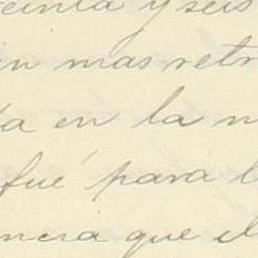 reinta y seis
in mas retr
da en la m
fué para l
nera que el